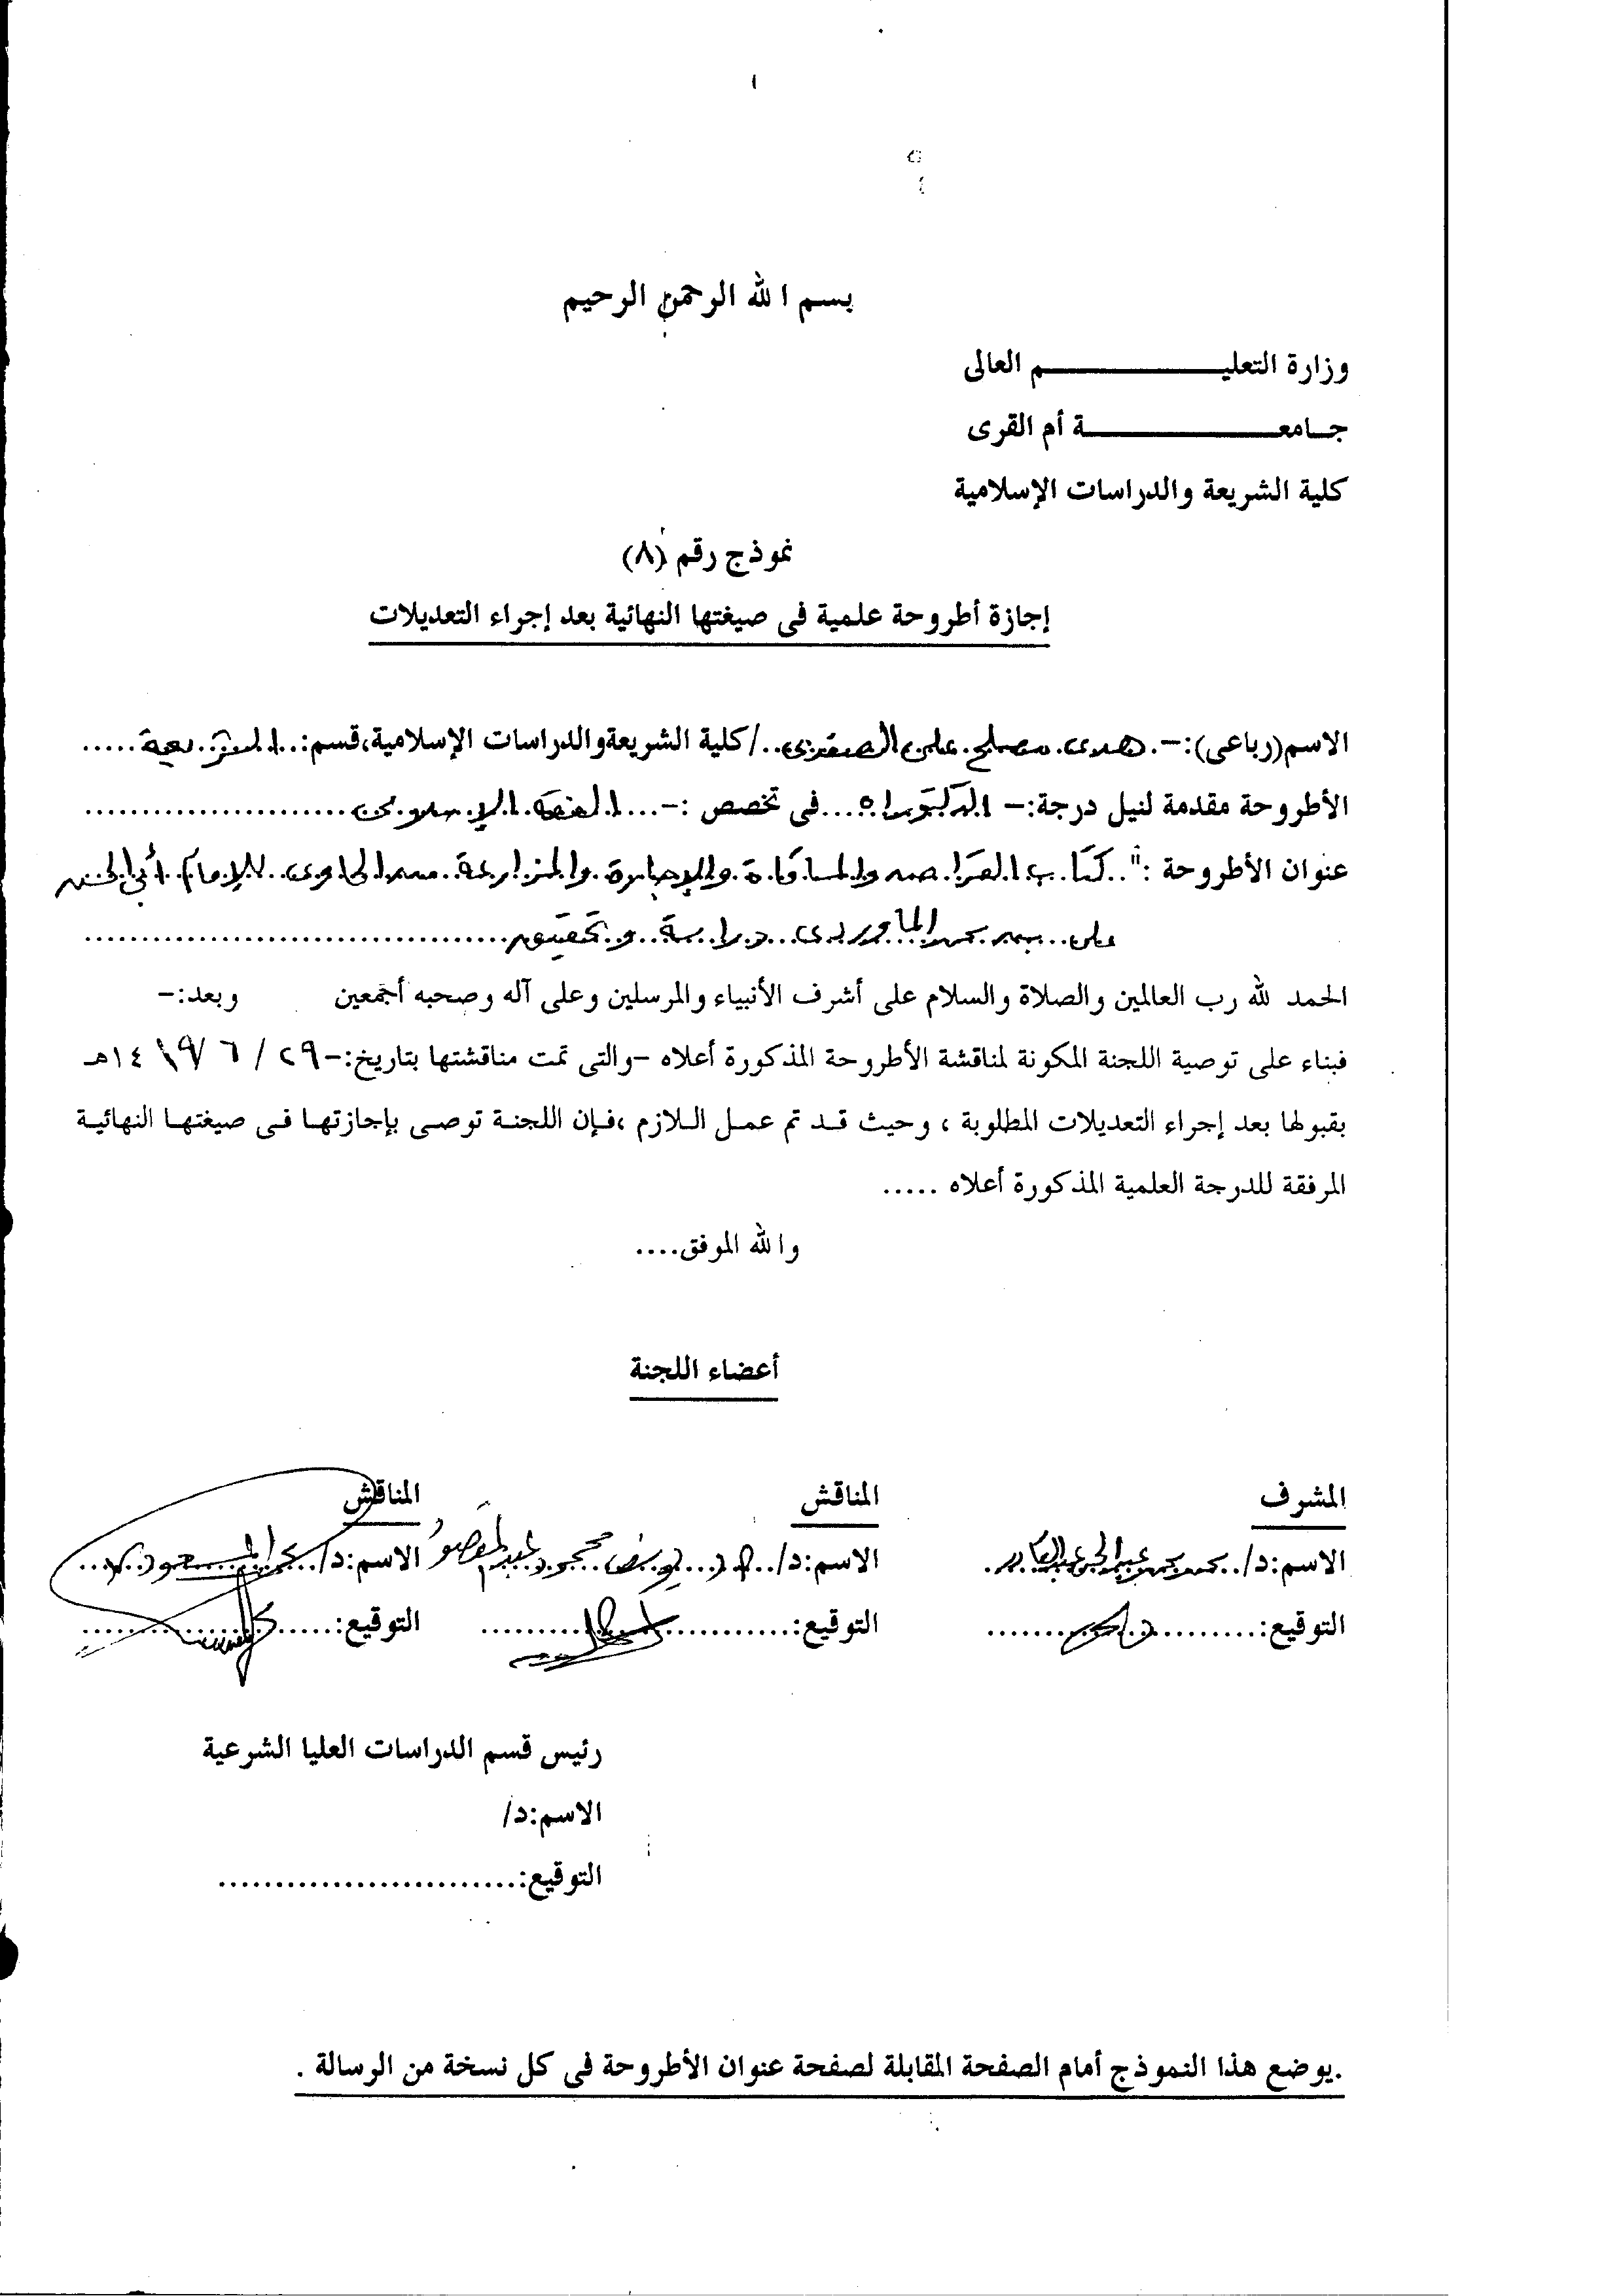 بسم الله الرحمن الرحيم
وزارة التعليم العالى
جامعة أم القرى
كلية الشريعة والدراسات الإسلامية
نموذج رقم (٨)
إجازة أطروحة علمية فى صيغتها النهائية بعد إجراء التعديلات
الاسم(رباعى):-. هدى. مصلح. على. ../كلية الشريعة والدراسات الإسلامية،قسم:..الشريعة.....
الأطروحة مقدمة لنيل درجة:- الدكتوراه...فى تخصص :-...الفقه.الإسلامى......................
عنوان الأطروحة :"..كتاب.القراض والمساقاة.والإجارة.والمزارعة.من الحاوى.للإمام.أبى الحسن
على..بن محمد الماوردى...دراسة..وتحقيق.....................................
الحمد لله رب العالمين والصلاة والسلام على أشرف الأنبياء والمرسلين وعلى آله وصحبه أجمعين وبعد:-
فبناء على توصية اللجنة المكونة لمناقشة الأطروحة المذكورة أعلاه -والتى تمت مناقشتها بتاريخ:-٢٩ / ٦ /١٤١٩هـ
بقبولها بعد إجراء التعديلات المطلوبة ، وحيث قد تم عمل اللازم ،فإن اللجنة توصى بإجازتها فى صيغتها النهائية
المرفقة للدرجة العلمية المذكورة أعلاه .....
والله الموفق....
أعضاء اللجنة
المشرف المناقش المناقش
الاسم:د/..محمد محمد عبد الحى عبد القادر. الاسم:د/...محمود عبد المقصود الاسم:د/..
التوقيع:...................... التوقيع:...................... التوقيع:......................
رئيس قسم الدراسات العليا الشرعية
الاسم:د/
التوقيع:..........................
.يوضع هذا النموذج أمام الصفحة المقابلة لصفحة عنوان الأطروحة فى كل نسخة من الرسالة .